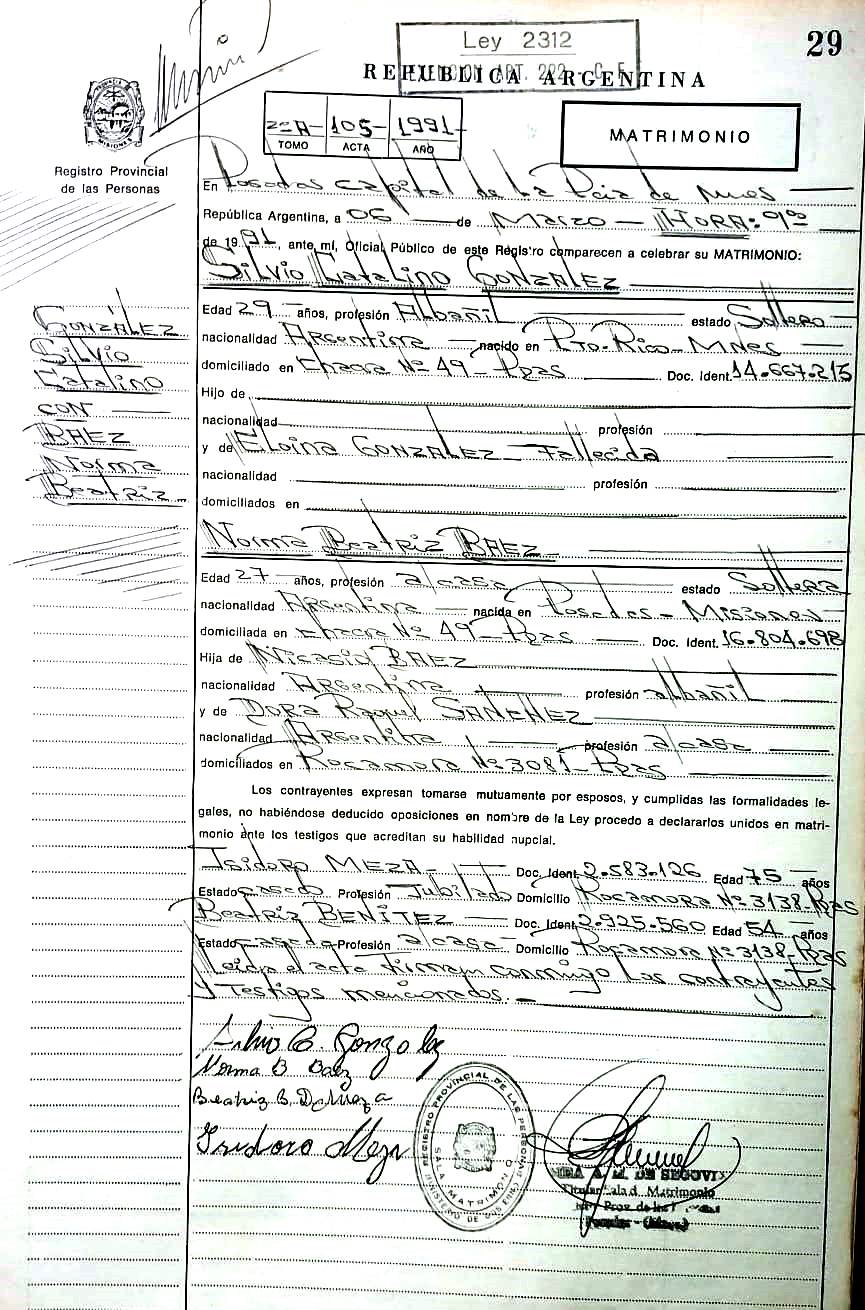 29
Ley 2312
REPUBLICA ARGENTINA
ART. 292 - C. F.
2º A- 105- 1991-
TOMO ACTA AÑO
MATRIMONIO
PROVINCIA DE MISIONES
Registro Provincial
de las Personas
En Posadas Capital de la Pcia de Mnes
República Argentina, a 06 de Marzo - HORA: 9º⁰
de 1991, ante mí, Oficial Público de este Registro comparecen a celebrar su MATRIMONIO:
Silvio Catalino GONZALEZ
GONZALEZ
Silvio
Catalino
CON
BAEZ
Norma
Beatriz
Edad 29 años, profesión Albañil estado Soltero
nacionalidad Argentina nacido en Pto. Rico - Mnes
domiciliado en Chacra Nº 49 - Pdas Doc. Ident. 14.667.215
Hijo de
nacionalidad profesión
y de Eloina GONZALEZ - Fallecida
nacionalidad profesión
domiciliados en
Norma Beatriz BAEZ
Edad 27 años, profesión a/casa estado Soltera
nacionalidad Argentina nacida en Posadas - Misiones
domiciliada en Chacra Nº 49 - Pdas Doc. Ident. 16.804.698
Hija de Nicasio BAEZ
nacionalidad Argentina profesión albañil
y de DORA Raquel SANCHEZ
nacionalidad Argentina profesión a/casa
domiciliados en Rocamora Nº 3081 - Pdas
Los contrayentes expresan tomarse mutuamente por esposos, y cumplidas las formalidades le-
gales, no habiéndose deducido oposiciones en nombre de la Ley procedo a declararlos unidos en matri-
monio ante los testigos que acreditan su habilidad nupcial.
Isidoro MEZA Doc. Ident. 2.583.126 Edad 75 años
Estado casado Profesión Jubilado Domicilio Rocamora Nº 3138 - Pdas
Beatriz BENITEZ Doc. Ident. 2.925.560 Edad 54 años
Estado casada Profesión a/casa Domicilio Rocamora Nº 3138 - Pdas
Leída el acta firman conmigo los contrayentes
y testigos mencionados. -
Silvio C. Gonzalez
Norma B Baez
Beatriz B. De Meza
Isidoro Meza
REGISTRO PROVINCIAL DE LAS PERSONAS
SALA MATRIMONIO
A. M. DE SEGOVIA
Titular Sala d. Matrimonio
Prov. de las
Posadas - (Mnes)